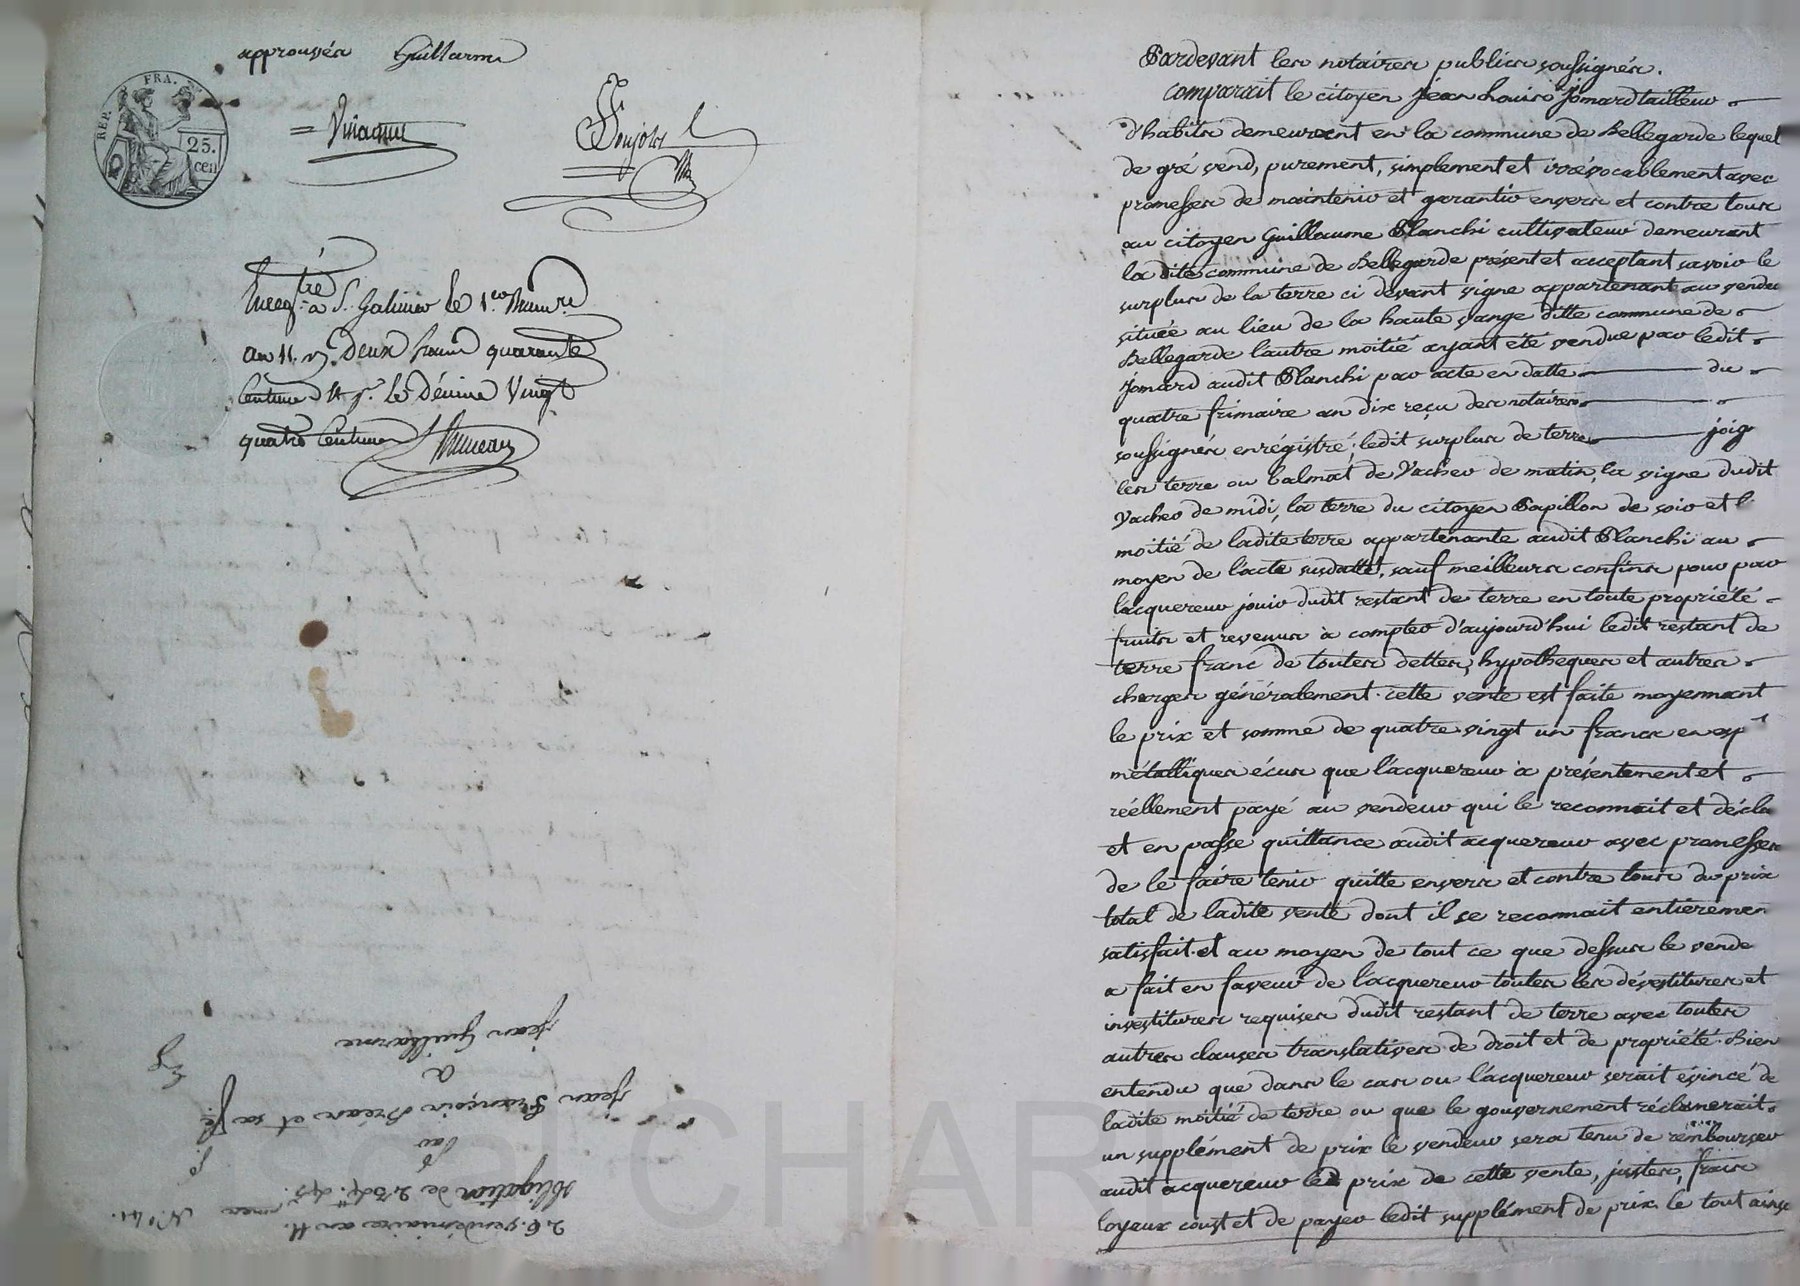 approuvés Guillarme
REP. FRA.
25.
cen
Enregtré à St. Galmier le 1er brum.re
an 11. r. Deux francs quarante
Centimes Le Décime Vingt
quatre Centimes
Pardevant les notaires publics soussignés.
Comparait le citoyen jean Louis jomard tailleur
d'habits demeurant en la commune de Bellegarde lequel
de gré vend, purement, simplement et irrévocablement avec
promesses de maintenir et garantir envers et contre tous
au citoyen Guillaume Planchi cultivateur demeurant
la dite commune de Bellegarde présent et acceptant savoir le
surplus de la terre ci devant vigne appartenant au vende
située au lieu de la haute vange ditte commune de
Bellegarde l'autre moitié ayant été vendue par ledit
jomard audit Planchi par acte en datte du
quatre frimaire an dix reçu des notaires
soussignés enrégistré; ledit surplus de terre joig
les terre ou balmat de Vacher de matin, la vigne dudit
Vacher de midi, la terre du citoyen Papillon de soir et l
moitié de ladite terre appartenante audit Planchi au
moyen de l'acte susdatté, sauf meilleurs confins pour par
l'acquereur jouir dudit restant de terre en toute propriété
fruits et revenus à compter d'aujourd'hui ledit restant de
terre franc de toutes dettes, hypotheques et autres
charges généralement. cette vente est faite moyennant
le prix et somme de quatre vingt un francs en esp
métalliques écus que l'acquereur a présentement et
réellement payé au vendeur qui le reconnait et décla
et en passe quittance audit acquereur avec promesses
de le faire tenir quitte envers et contre tous du prix
total de ladite vente dont il se reconnait entièremen
satisfait. et au moyen de tout ce que dessus le vende
a fait en faveur de l'acquereur toutes les dévestitures et
investitures requises dudit restant de terre avec toutes
autres clauses translatives de droit et de propriété. Bien
entendu que dans le cas ou l'acquereur serait évincé de
ladite moitié de terre ou que le gouvernement réclamerait
un supplément de prix le vendeur sera tenu de rembourser
audit acquereur le prix de cette vente, justes, frais
loyaux coust et de payer ledit supplément de prix. le tout ainsi
26. vendémiaire an 11. N° 41.
obligation de
par
jean François Bréan et sa fe.
à
jean Guillarme
CHAR